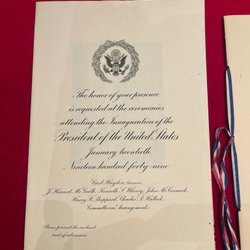 The honor of your presence
is requested at the ceremonies
attending the Inauguration of the
President of the United States
January twentieth
Nineteen hundred forty-nine
Carl Hayden, Chairman
J. Howard McGrath, Kenneth S. Wherry, John McCormack,
Harry R. Sheppard, Charles A. Halleck,
Committee on Arrangements
Please present the enclosed
card of admission